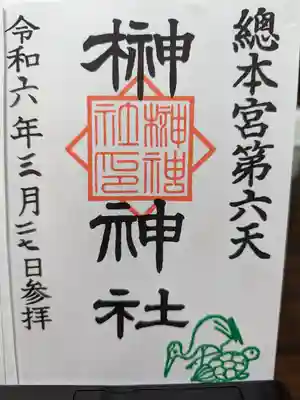 總本宮第六天
榊神社
榊神
社印
令和六年三月二七日参拝